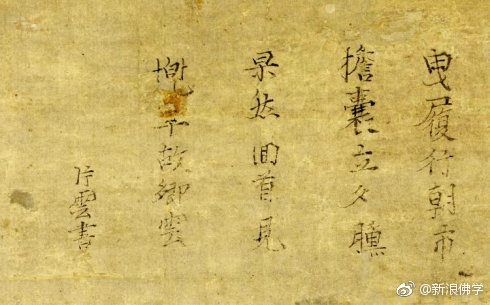 曳履行朝市
擔囊立夕曛
果然回首見
兜率故鄉雲
片雲書
@新浪佛学